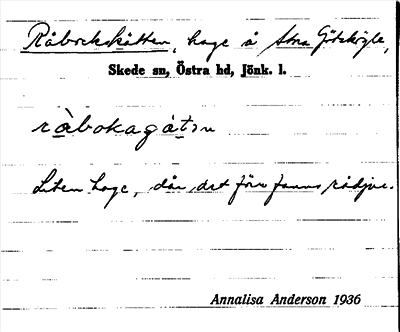 Råbockskätten, hage å Stora Göteryle,
Skede sn, Östra hd, Jönk. l.
ràbokagátən
Liten hage, där det förr fanns rådjur.
Annalisa Anderson 1936